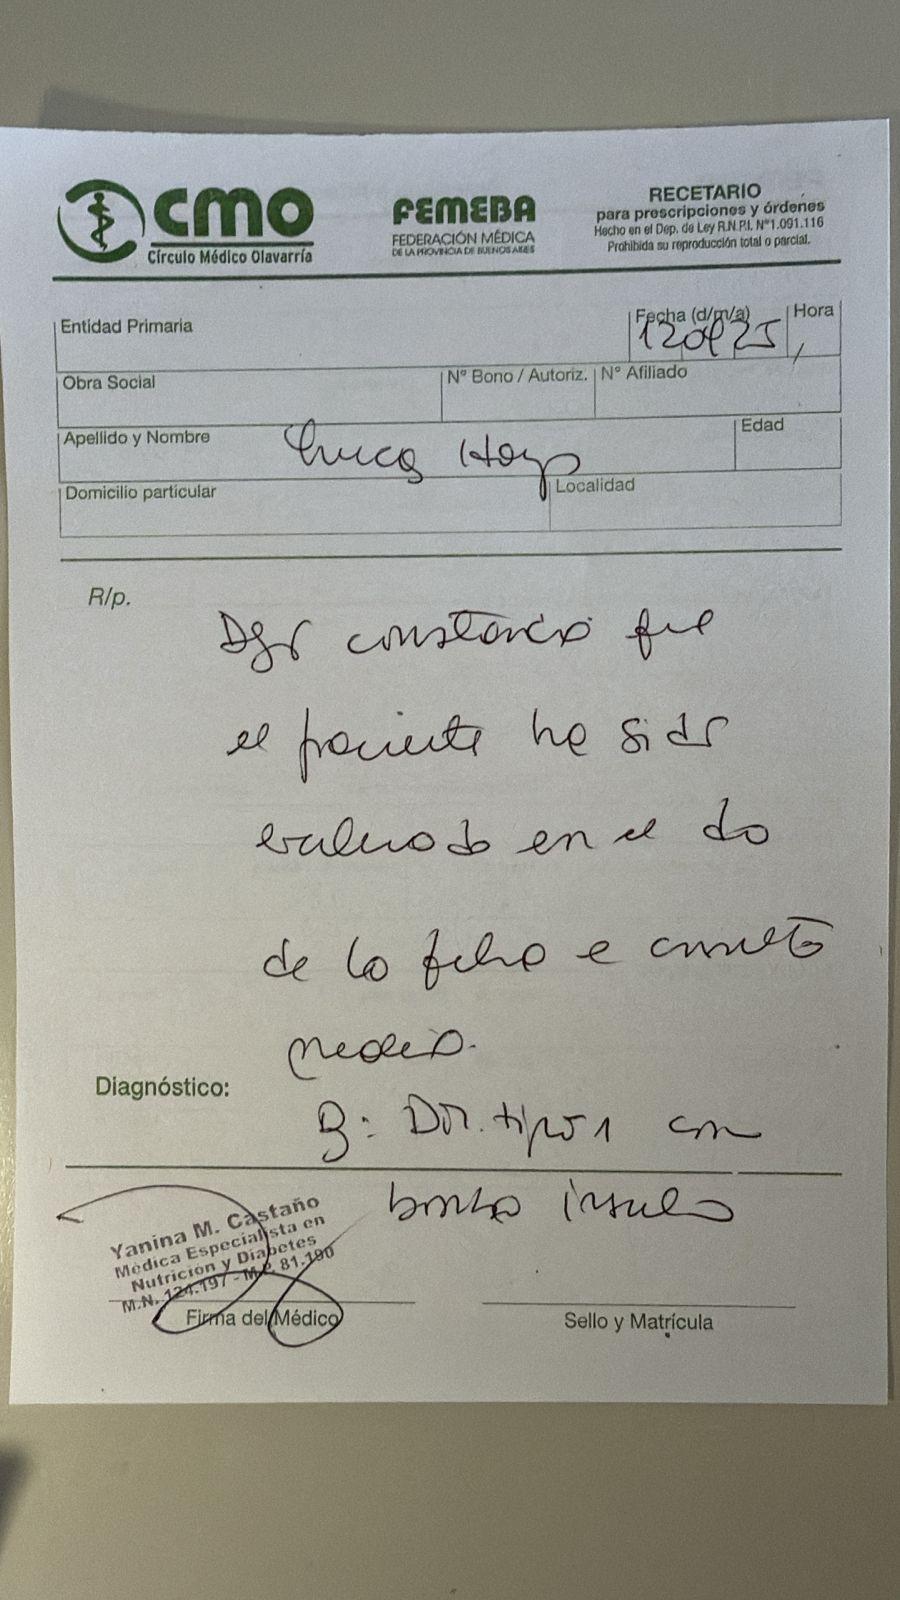 CMO
Círculo Médico Olavarría
FEMEBA
FEDERACIÓN MÉDICA
DE LA PROVINCIA DE BUENOS AIRES
RECETARIO
para prescripciones y órdenes
Hecho en el Dep. de Ley R.N.P.I. N°1.091.116
Prohibida su reproducción total o parcial.
Entidad Primaria
Fecha (d/m/a)
Hora
Obra Social
N° Bono / Autoriz.
N° Afiliado
Apellido y Nombre
Edad
Domicilio particular
Localidad
R/p.
constancia que
el paciente ha sido
evaluado en el día
de la fecha e consulta
médica.
Diagnóstico:
D: DM. tipo 1 con
bomba insulina
Yanina M. Castaño
Médica Especialista en
Nutrición y Diabetes
M.N. 124.197 - M.P. 81.190
Firma del Médico
Sello y Matrícula